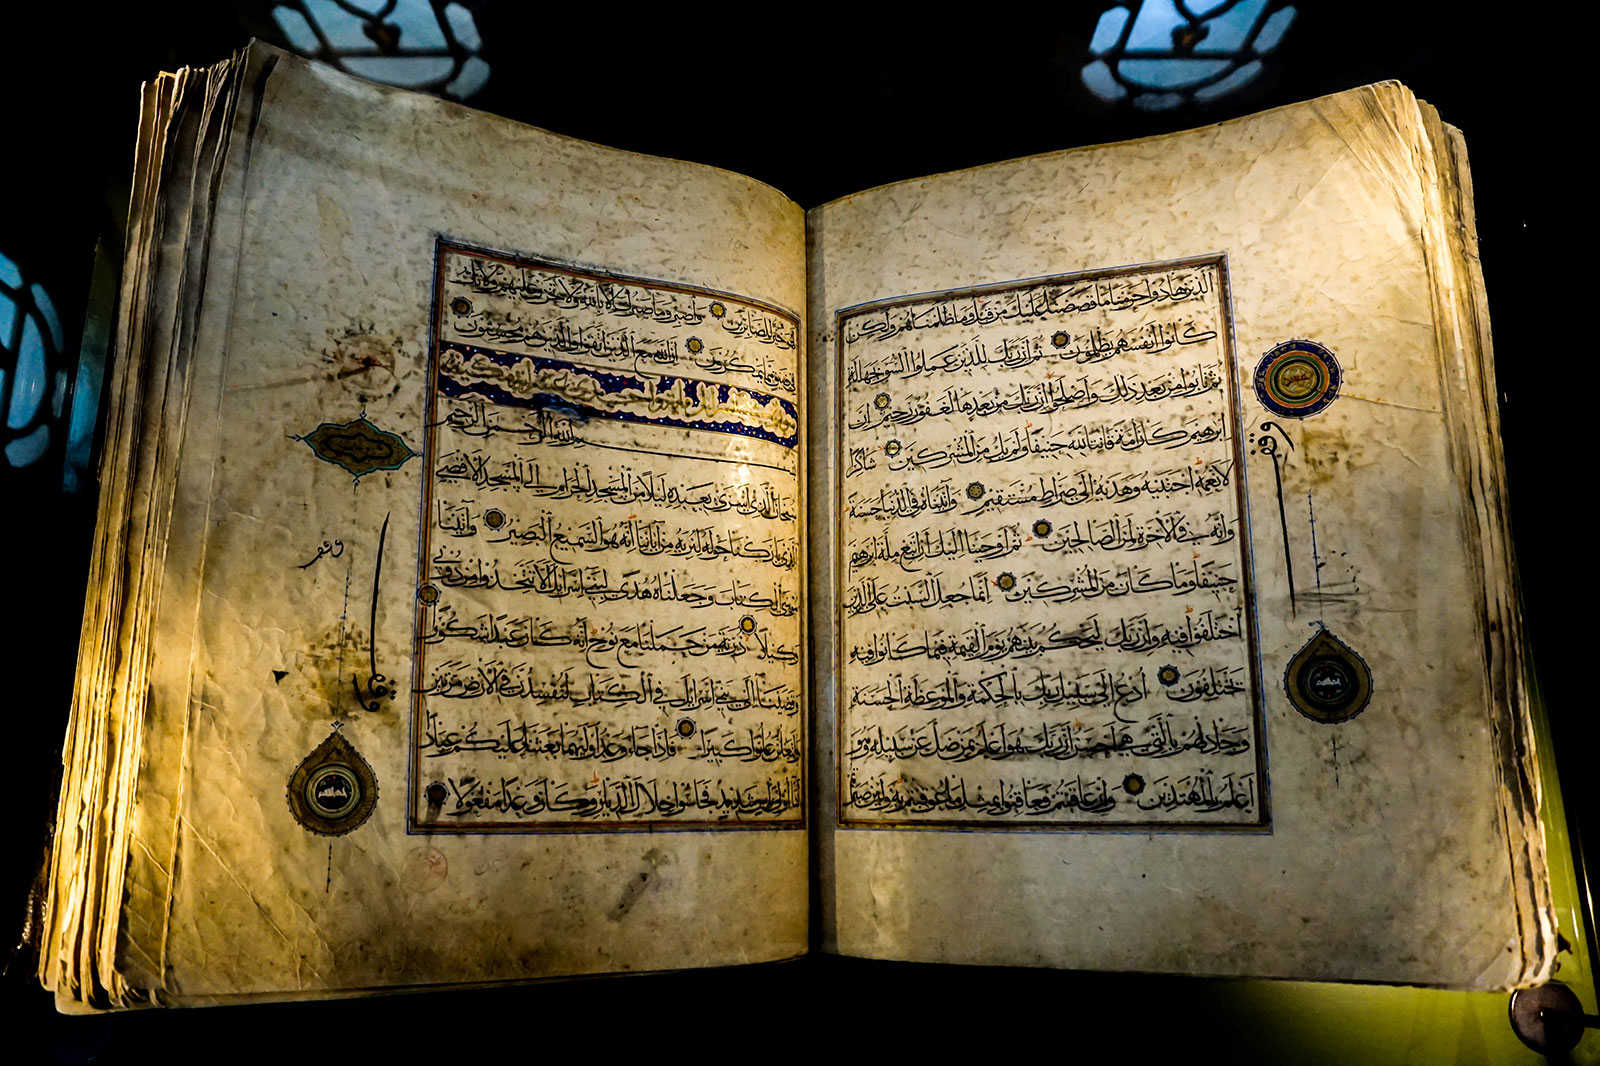 الذين هادوا حرمنا ما قصصنا عليك من قبل وما ظلمناهم ولكن
كانوا أنفسهم يظلمون ثم إن ربك للذين عملوا السوء بجهالة
ثم تابوا من بعد ذلك وأصلحوا إن ربك من بعدها لغفور رحيم إن
إبرهيم كان أمة قانتا لله حنيفا ولم يك من المشركين شاكرا
لأنعمه اجتبه وهديه إلى صراط مستقيم وآتيناه في الدنيا حسنة
وإنه في الآخرة لمن الصالحين ثم أوحينا إليك أن اتبع ملة إبرهيم
حنيفا وما كان من المشركين إنما جعل السبت على الذين
اختلفوا فيه وإن ربك ليحكم بينهم يوم القيمة فيما كانوا فيه
يختلفون ادع إلى سبيل ربك بالحكمة والموعظة الحسنة
وجادلهم بالتي هي أحسن إن ربك هو أعلم بمن ضل عن سبيله وهو
أعلم بالمهتدين وإن عاقبتم فعاقبوا بمثل ما عوقبتم به ولئن صبرتم
لهو خير للصابرين واصبر وما صبرك إلا بالله ولا تحزن عليهم ولا تك
في ضيق مما يمكرون إن الله مع الذين اتقوا والذين هم محسنون
بسم الله الرحمن الرحيم
سبحان الذي أسرى بعبده ليلا من المسجد الحرام إلى المسجد الأقصى
الذي باركنا حوله لنريه من آياتنا إنه هو السميع البصير وآتينا
موسى الكتاب وجعلناه هدى لبني إسرائيل ألا تتخذوا من دوني
وكيلا ذرية من حملنا مع نوح إنه كان عبدا شكورا
وقضينا إلى بني إسرائيل في الكتاب لتفسدن في الأرض مرتين
ولتعلن علوا كبيرا فإذا جاء وعد أوليهما بعثنا عليكم عبادا
لنا أولي بأس شديد فجاسوا خلال الديار وكان وعدا مفعولا
وقف